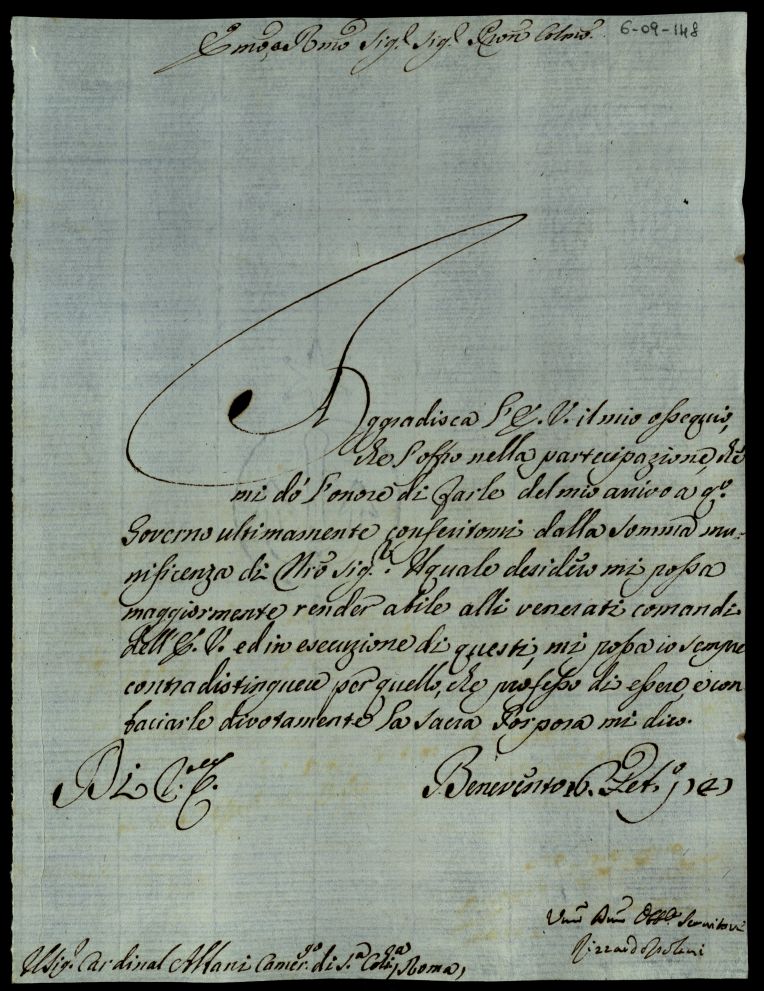 Emo, e Rmo Sig.r Sig.r Pron Colmo. 6-09-148
Aggradisca l'E. V. il mio ossequio,
che l'offro nella partecipazione, che
mi dó l'onore di farle del mio arrivo a q.o
Governo ultimamente conferitomi dalla somma mu-
nificenza di Nro Sig.re Il quale desidero mi possa
maggiormente render abile alli venerati comandi
dell'E. V. ed in esecuzione di questi, mi possa io sempre
contradistinguere per quello, che professo di essere, e con
baciarle divotamente la Sacra Porpora mi dico.
Di V. E. Benevento 16.
Umo Dmo Servitore
Il Sig.r Cardinal Albani Camer.go di S.a Roma